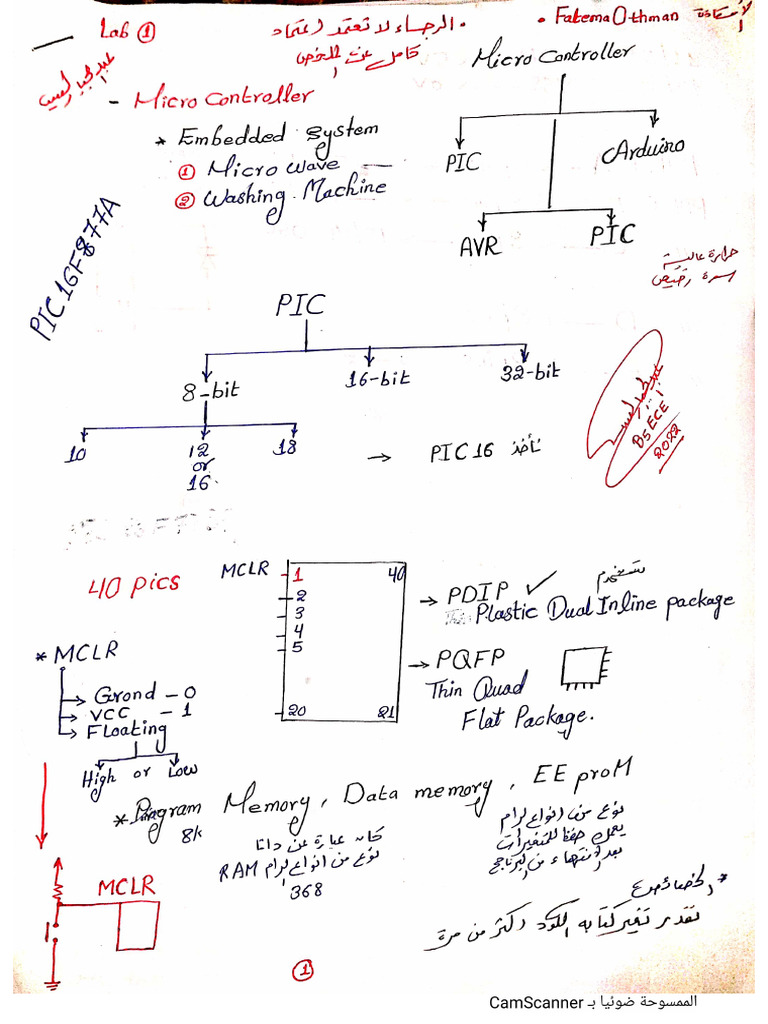 Lab ①
• الرجاء لا تعتمد اعتماد
كامل عن الملخص
• Fatema Othman الأستاذة
- Micro Controller
* Embedded System
① Micro wave
② Washing Machine
PIC16F877A
Micro Controller
PIC
Arduino
AVR
PIC
حرارة عالية
PIC
8-bit
16-bit
32-bit
10
12
or
16
18
→ PIC 16 نأخذ
BSECE
2022
40 pics
MCLR
1
40
2
3
4
5
20
21
→ PDIP ✓ نستخدم
Plastic Dual Inline package
→ PQFP
Thin Quad
Flat Package.
* MCLR
Grond - 0
VCC - 1
Floating
High or Low
* Program Memory, Data memory, EE proM
8k
كانه عبارة عن داتا
نوع من انواع لرام RAM
368
نوع من انواع لرام
يعمل حفظ للمتغيرات
بعد الانتهاء من البرنامج
MCLR
* الخصائص
تقدر تغير كتابه الكود اكثر من مرة
①
الممسوحة ضوئيا بـ CamScanner